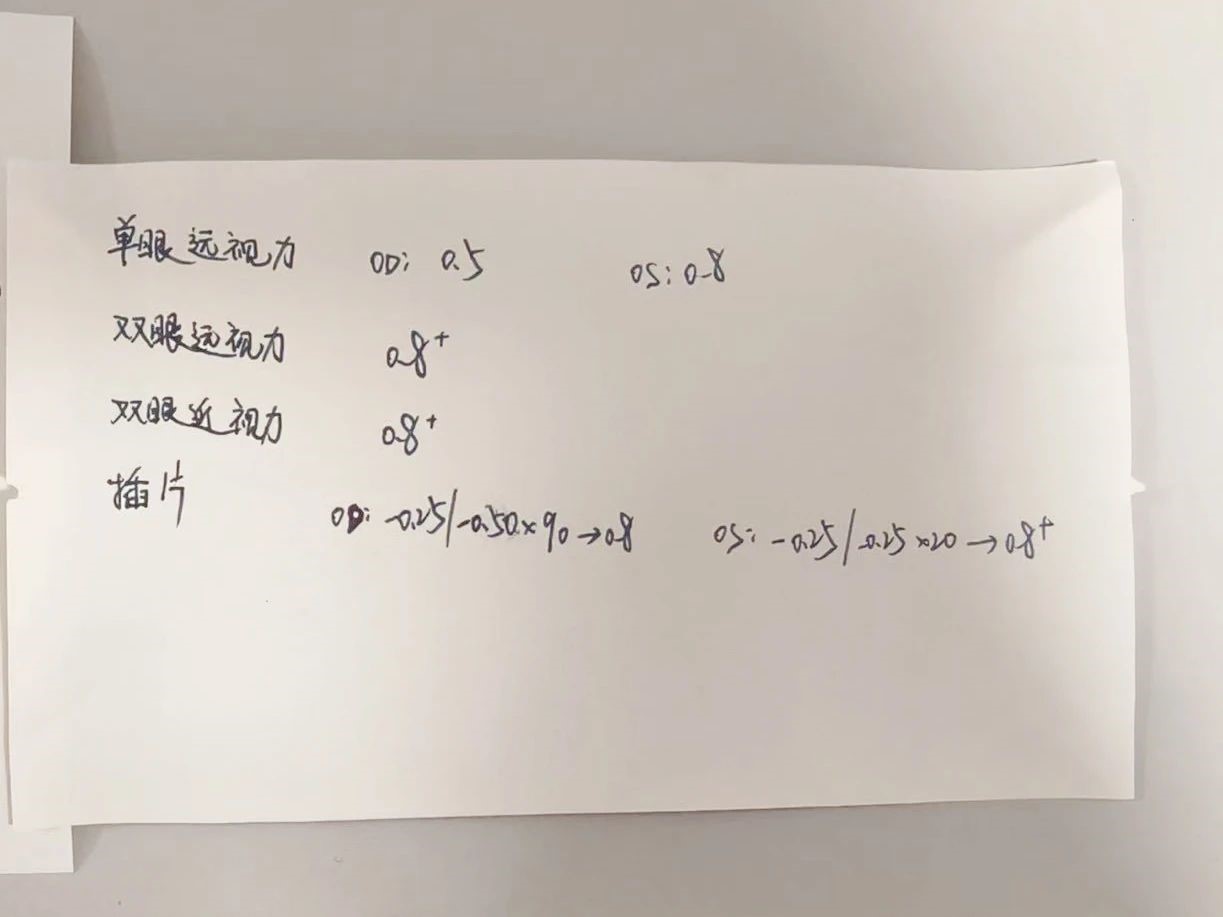 单眼远视力 OD: 0.5 OS: 0.8
双眼远视力 0.8+
双眼近视力 0.8+
插片 OD: -0.25/-0.50×90→0.8 OS: -0.25/-0.25×20→0.8+